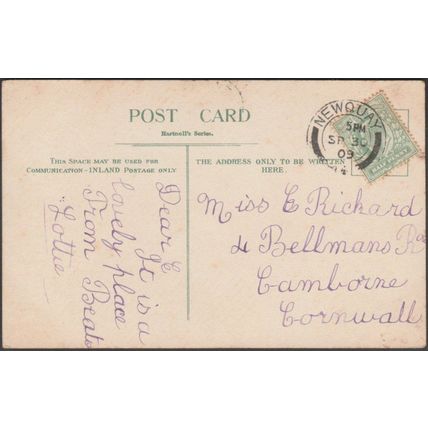 POST CARD
Hartnoll's Series.
THIS SPACE MAY BE USED FOR
COMMUNICATION-INLAND POSTAGE ONLY
THE ADDRESS ONLY TO BE WRITTEN
HERE.
NEWQUAY
5PM
SP 30
09
Dear E
It is a
lovely place
From
Lottie
Miss E Rickard
4 Bellmans
Camborne
Cornwall